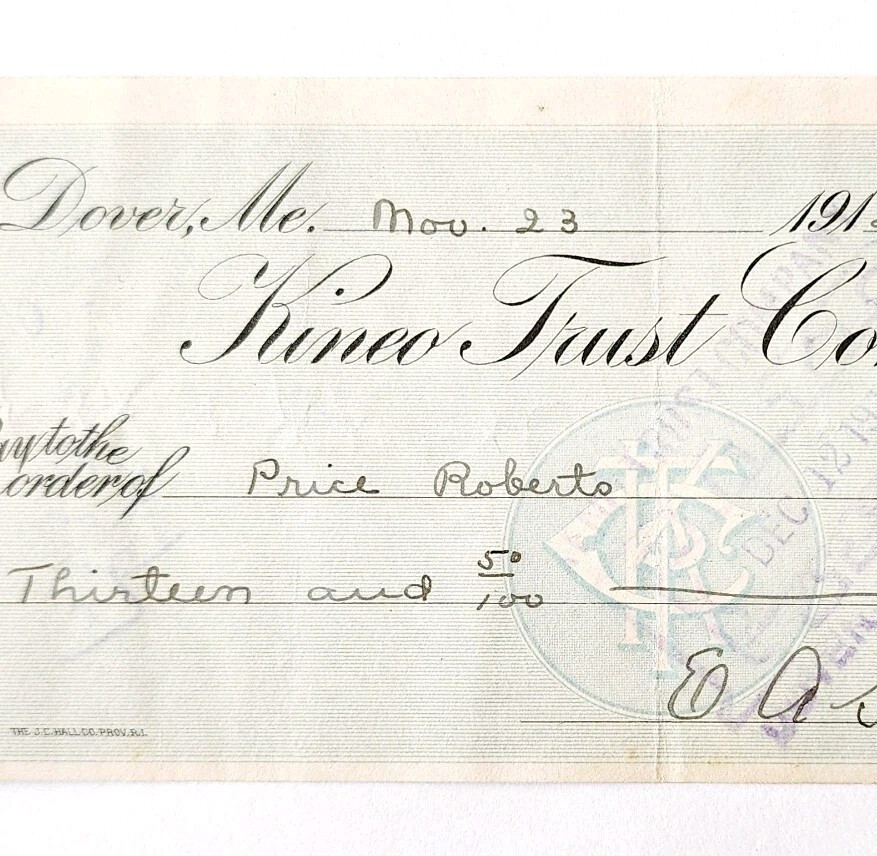 Dover, Me. Nov. 23 191
Kineo Trust Co
Pay to the
order of Price Roberts
Thirteen and 50/100
TRUST COMPANY
DEC 12 19
E A
THE J.C. HALL CO. PROV. R.I.